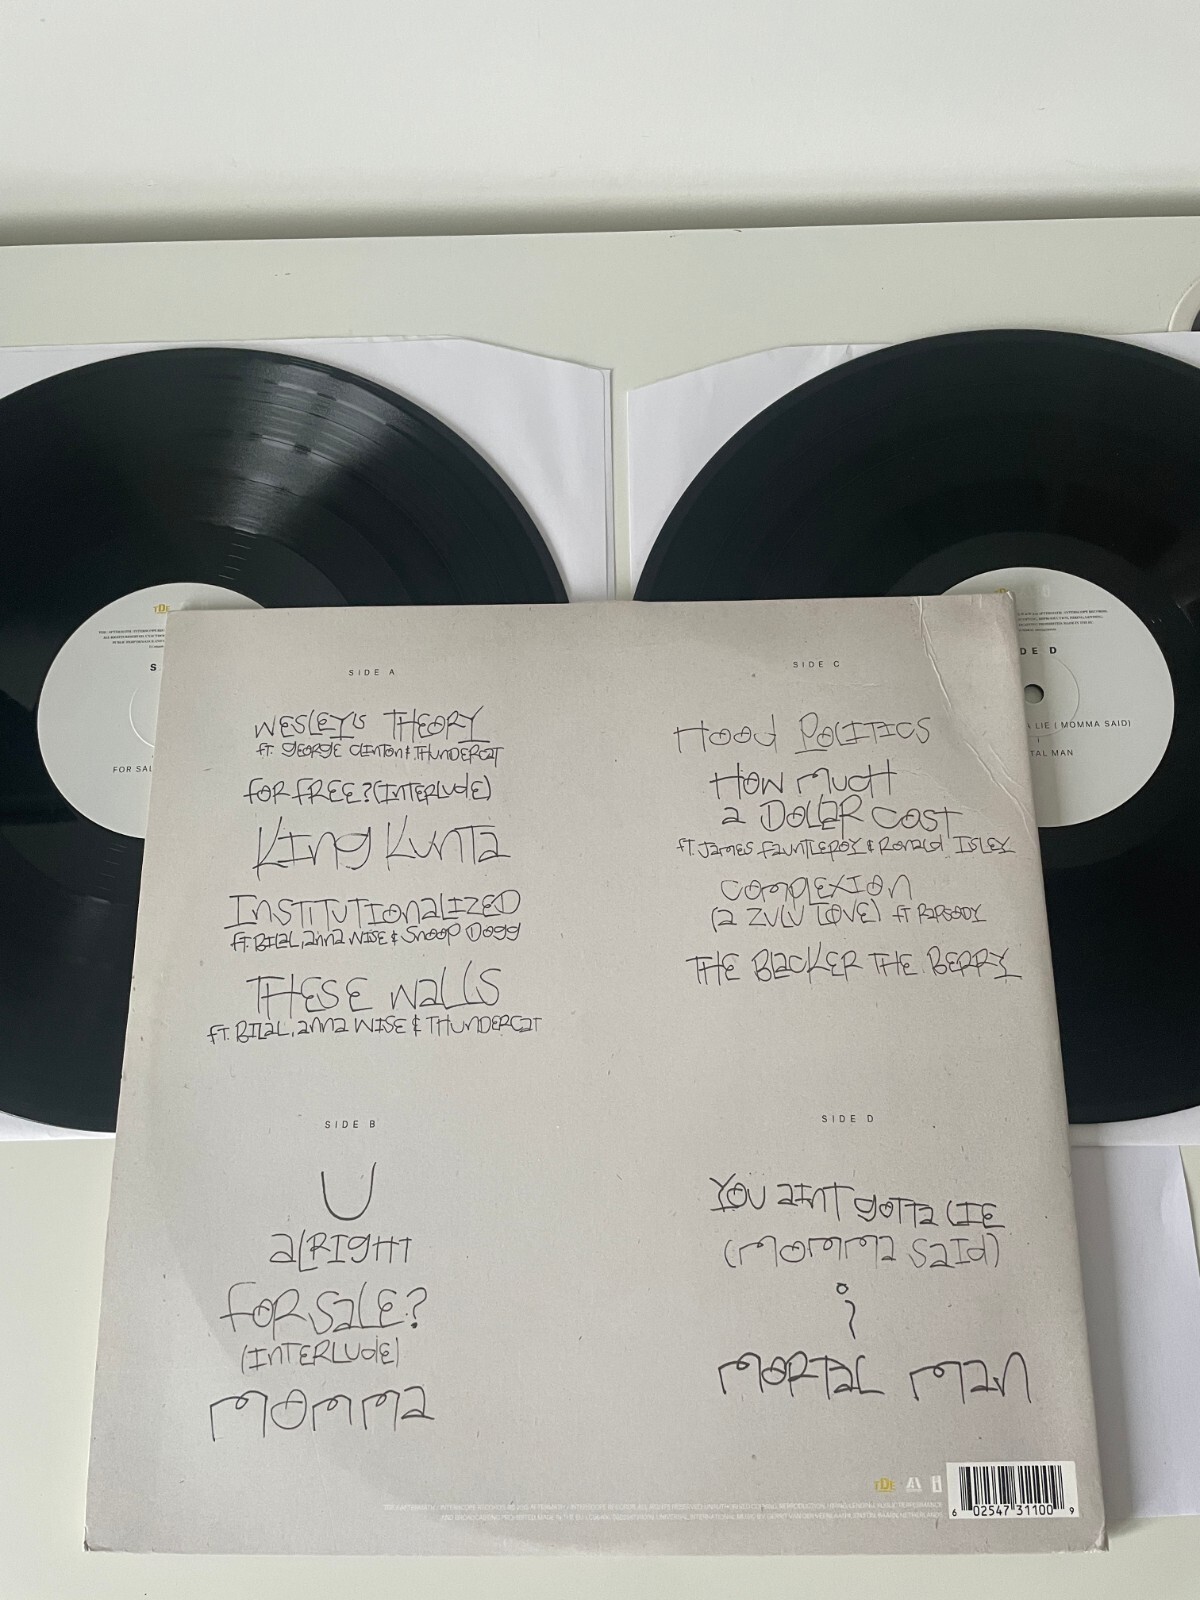 TDE
S
FOR SAL
TDE
DE D
A LIE ( MOMMA SAID)
i
TAL MAN
SIDE A
WESLEY'S THEORY
FT. GEORGE CLINTON & THUNDERCAT
FOR FREE? (INTERLUDE)
KING KUNTA
INSTITUTIONALIZED
FT. BILAL, ANNA WISE & SNOOP DOGG
THESE WALLS
FT. BILAL, ANNA WISE & THUNDERCAT
SIDE B
U
ALRIGHT
FOR SALE?
(INTERLUDE)
MOMMA
SIDE C
HOOD POLITICS
HOW MUCH
A DOLLAR COST
FT. JAMES FAUNTLEROY & RONALD ISLEY
COMPLEXION
(A ZULU LOVE) FT RAPSODY
THE BLACKER THE BERRY
SIDE D
YOU AINT GOTTA LIE
(MOMMA SAID)
i
MORTAL MAN
TDE
6 02547 31100 9